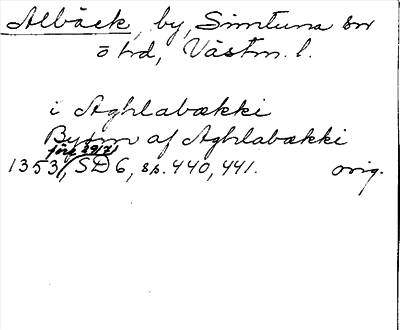 Albäck, by, Simtuna sn
ö hd, Västm. l.
i Aghlabækki
Byorn af Aghlabækki
före 29/7
1353, SD 6, sp. 440, 441. orig.